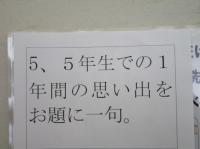 5、5年生での1
年間の思い出を
お題に一句。